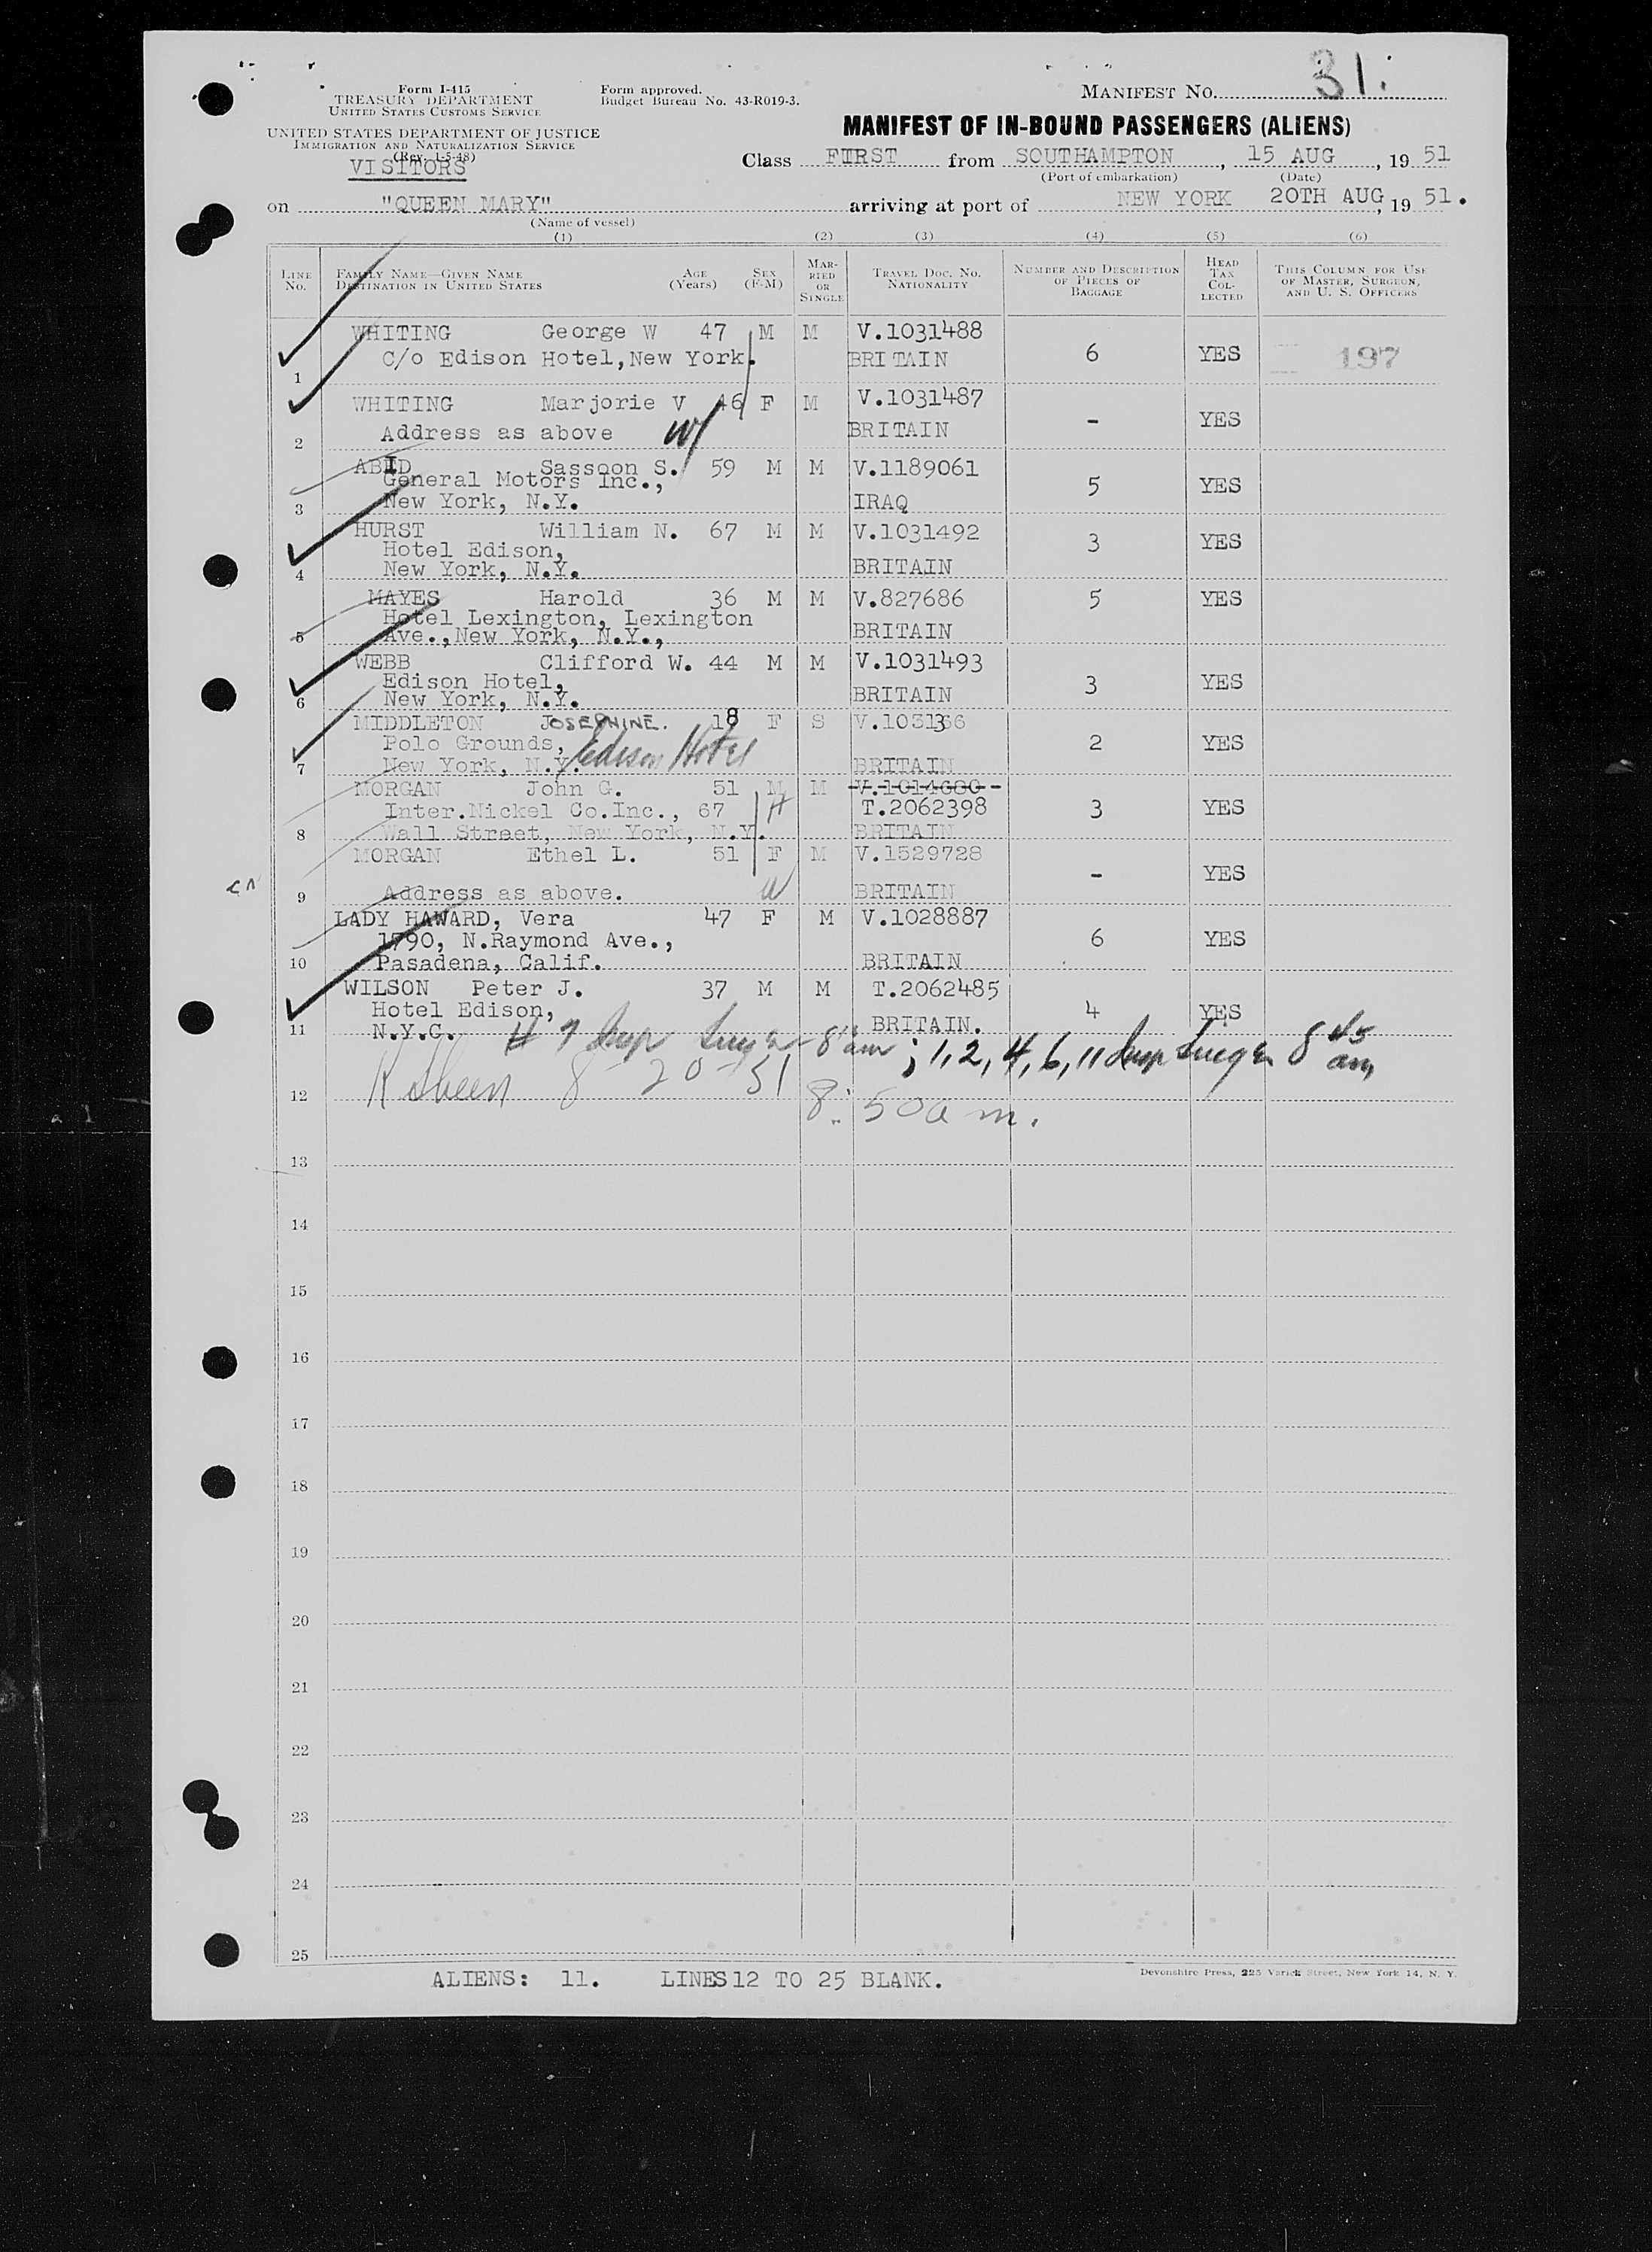 31.
Form I-415
TREASURY DEPARTMENT
UNITED STATES CUSTOMS SERVICE
UNITED STATES DEPARTMENT OF JUSTICE
IMMIGRATION AND NATURALIZATION SERVICE
(Rev. 1-5-48)
VISITORS
Form approved.
Budget Bureau No. 43-R019-3.
MANIFEST NO.
MANIFEST OF IN-BOUND PASSENGERS (ALIENS)
Class FIRST from SOUTHAMPTON, 15 AUG, 19 51
(Port of embarkation) (Date)
on "QUEEN MARY" arriving at port of NEW YORK 20TH AUG, 19 51.
(Name of vessel)
(1) (2) (3) (4) (5) (6)
LINE NO. FAMILY NAME—GIVEN NAME DESTINATION IN UNITED STATES AGE (Years) SEX (F-M) MARRIED OR SINGLE TRAVEL DOC. NO. NATIONALITY NUMBER AND DESCRIPTION OF PIECES OF BAGGAGE HEAD TAX COLLECTED THIS COLUMN FOR USE OF MASTER, SURGEON, AND U. S. OFFICERS
WHITING George W 47 M M V.1031488
C/o Edison Hotel, New York. BRITAIN 6 YES 197
1
WHITING Marjorie V 46 F M V.1031487
Address as above W BRITAIN - YES
2
ABID Sassoon S. 59 M M V.1189061
General Motors Inc., 5 YES
3 New York, N.Y. IRAQ
HURST William N. 67 M M V.1031492
Hotel Edison, 3 YES
4 New York, N.Y. BRITAIN
MAYES Harold 36 M M V.827686 5 YES
Hotel Lexington, Lexington
5 Ave., New York, N.Y., BRITAIN
WEBB Clifford W. 44 M M V.1031493
Edison Hotel, 3 YES
6 New York, N.Y. BRITAIN
MIDDLETON JOSEPHINE. 18 F S
Polo Grounds, Edison Hotel 2 YES
7 New York, N.Y. BRITAIN
MORGAN John G. 51 M M V.1014680
Inter.Nickel Co.Inc., 67 H T.2062398 3 YES
8 Wall Street, New York, N.Y. BRITAIN
MORGAN Ethel L. 51 F M V.1529728
- YES
9 Address as above. W BRITAIN
LADY HAWARD, Vera 47 F M V.1028887
1790, N.Raymond Ave., 6 YES
10 Pasadena, Calif. BRITAIN
WILSON Peter J. 37 M M T.2062485
Hotel Edison, 4 YES
11 N.Y.C. BRITAIN.
# 7 Insp 8 am; 1, 2, 4, 6, 11 Insp 8 45 am
8-20-51
12 8:50 a m.
13
14
15
16
17
18
19
20
21
22
23
24
25
ALIENS: 11. LINES 12 TO 25 BLANK.
Devonshire Press, 225 Varick Street, New York 14, N. Y.